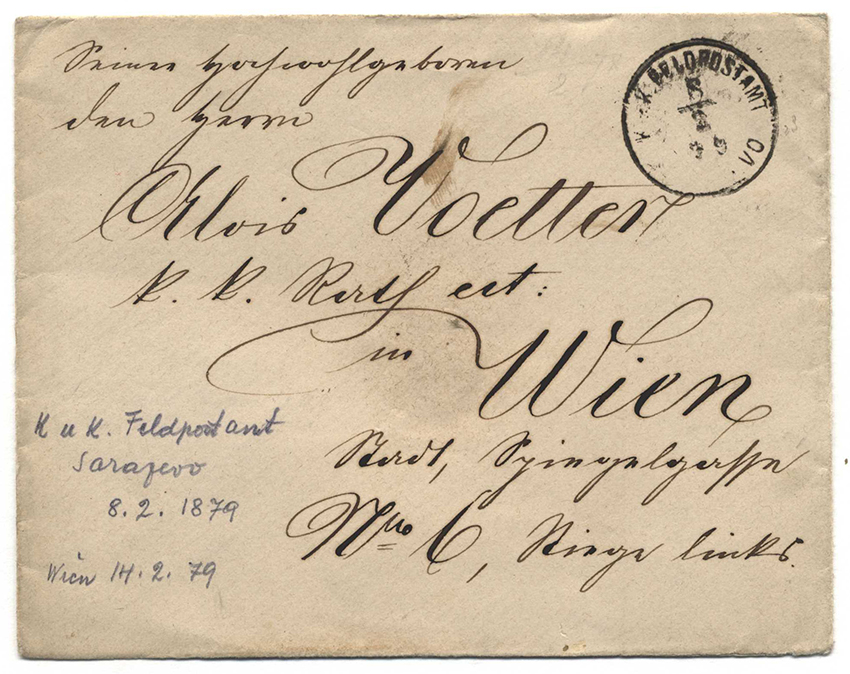 Seiner Hochwohlgeboren
den Herrn
Alois Voetter
k. k. Rath ect:
in
Wien
Stadt, Spiegelgasse
Nro 6, Stiege links.
K. FELDPOSTAMT
K u K. Feldpostamt
Sarajevo
8. 2. 1879
Wien 14. 2. 79